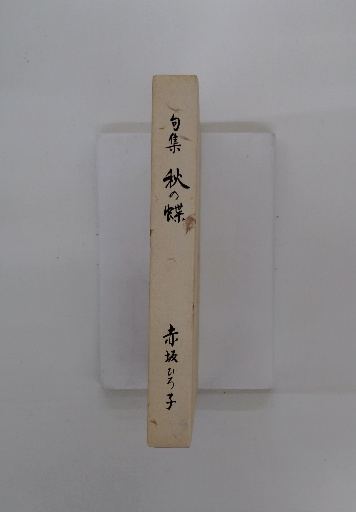 句集 秋の蝶 赤坂ひろ子